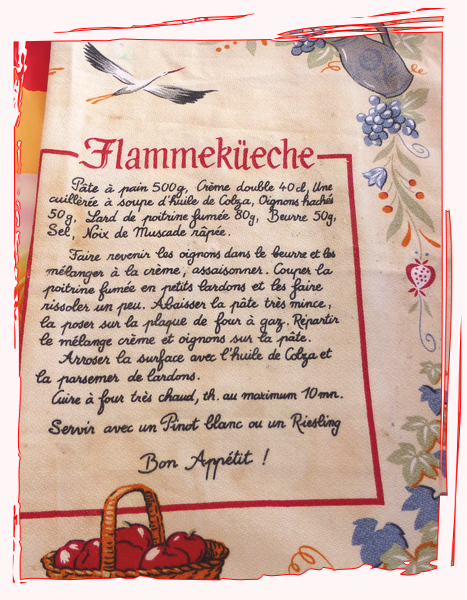 Flammeküeche
Pâte à pain 500g, Crème double 40 cl, Une
cuillère à soupe d'huile de Colza, Oignons hachés
50g, Lard de poitrine fumée 80g, Beurre 50g,
Sel, Noix de Muscade râpée.
Faire revenir les oignons dans le beurre et les
mélanger à la crème, assaisonner. Couper la
poitrine fumée en petits lardons et les faire
rissoler un peu. Abaisser la pâte très mince,
la poser sur la plaque de four à gaz. Répartir
le mélange crème et oignons sur la pâte.
Arroser la surface avec l'huile de Colza et
la parsemer de lardons.
Cuire à four très chaud, th. au maximum 10 mn.
Servir avec un Pinot blanc ou un Riesling
Bon Appétit !